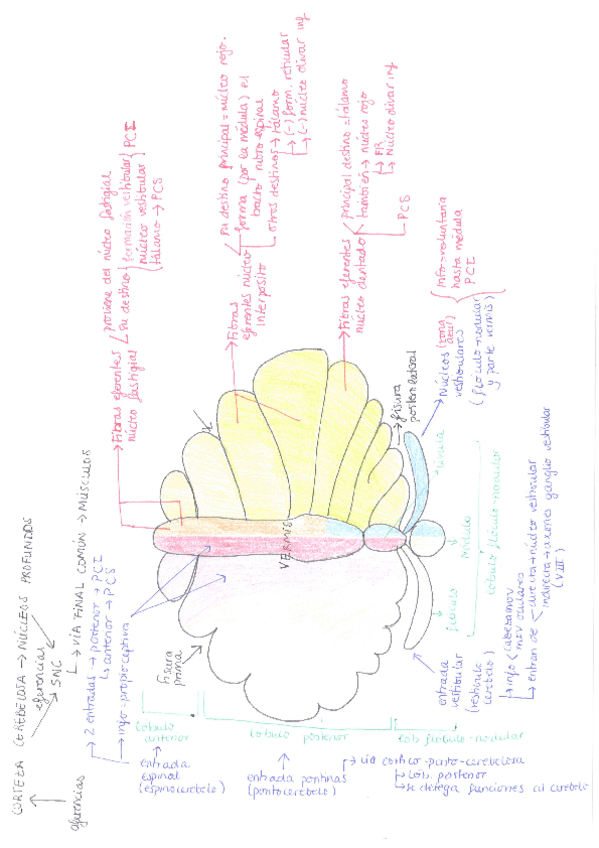 CORTEZA CEREBELOSA → NÚCLEOS PROFUNDOS
aferencias
eferencias
→ SNC
→ VÍA FINAL COMÚN → MÚSCULOS
→ 2 entradas → posterior → PCI
→ anterior → PCS
→ info = propioceptiva
entrada
espinal
(espinocerebelo)
lóbulo
anterior
fisura
prima
lóbulo posterior
entrada pontinas
(pontocerebelo)
→ vía cortico-ponto-cerebelosa
→ lob. posterior
→ se delega funciones al cerebelo
lob. flóculo-nodular
entrada
vestibular
(vestíbulo
cerebelo)
→ info
cabeza
mov oculares
→ entran de
directa → núcleo vestibular
indirecta → axones ganglio vestibular
(VIII)
VERMIS
flóculo
nódulo
lóbulo flóculo-nodular
→ fisura
posterolateral
→ Núcleos (zona
azul)
vestibulares
(flóculo-nodular
y parte vermis)
Info = voluntaria
hasta médula
PCI
→ Fibras eferentes
núcleo fastigial
proviene del núcleo fastigial
Su destino
formación vestibular
núcleo vestibular
PCI
tálamo → PCS
→ Fibras
eferentes núcleo
interpósito
su destino principal = núcleo rojo.
forma (por la médula) el
tracto rubro-espinal
otros destinos → tálamo
→ (-) form. reticular
→ (-) núcleo olivar inf
→ Fibras eferentes
núcleo dentado
principal destino = tálamo
también → núcleo rojo
→ FR
→ Núcleo olivar inf
PCS